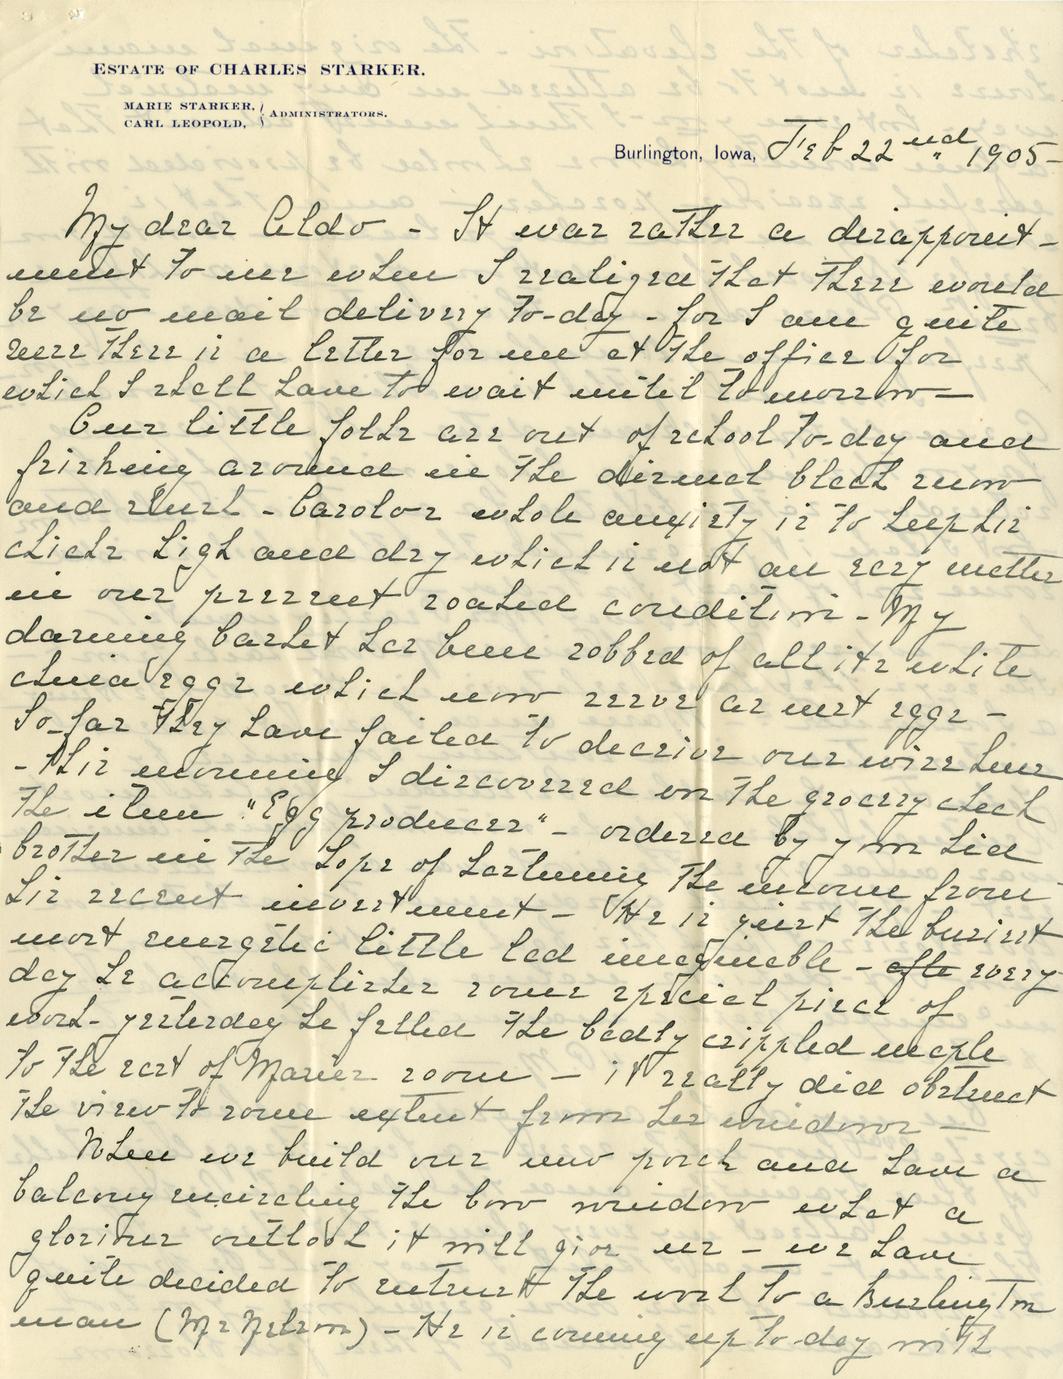 ESTATE OF CHARLES STARKER.
MARIE STARKER,
CARL LEOPOLD,
ADMINISTRATORS.
Burlington, Iowa, Feb 22nd 1905-
My dear Aldo - It was rather a disappoint-
ment to me when I realized that there would
be no mail delivery to-day - for I am quite
sure there is a letter for me at the office for
which I shall have to wait until to morrow -
Our little folks are out of school to-day and
frisking around in the dismal black snow
and slush - Carolos whole anxiety is to keep his
chicks high and dry which is not an easy matter
in our present soaked condition - My
darning basket has been robbed of all its white
china eggs which now serve as nest eggs -
So-far they have failed to deceive our wise hens
- this morning I discovered on the grocery check
the item "Egg producer" - ordered by your kid
brother in the hope of hastening the income from
his recent investment - He is just the busiest
most energetic little lad imaginable - afte every
day he accomplishes some special piece of
work - yesterday he felled the badly crippled maple
to the east of Maries room - it really did obstruct
the view to some extent from her window -
When we build our new porch and have a
balcony encircling the bow window what a
glorious outlook it will give us - we have
quite decided to entrust the work to a Burlington
man (Mr Nelson) - He is coming up to-day with